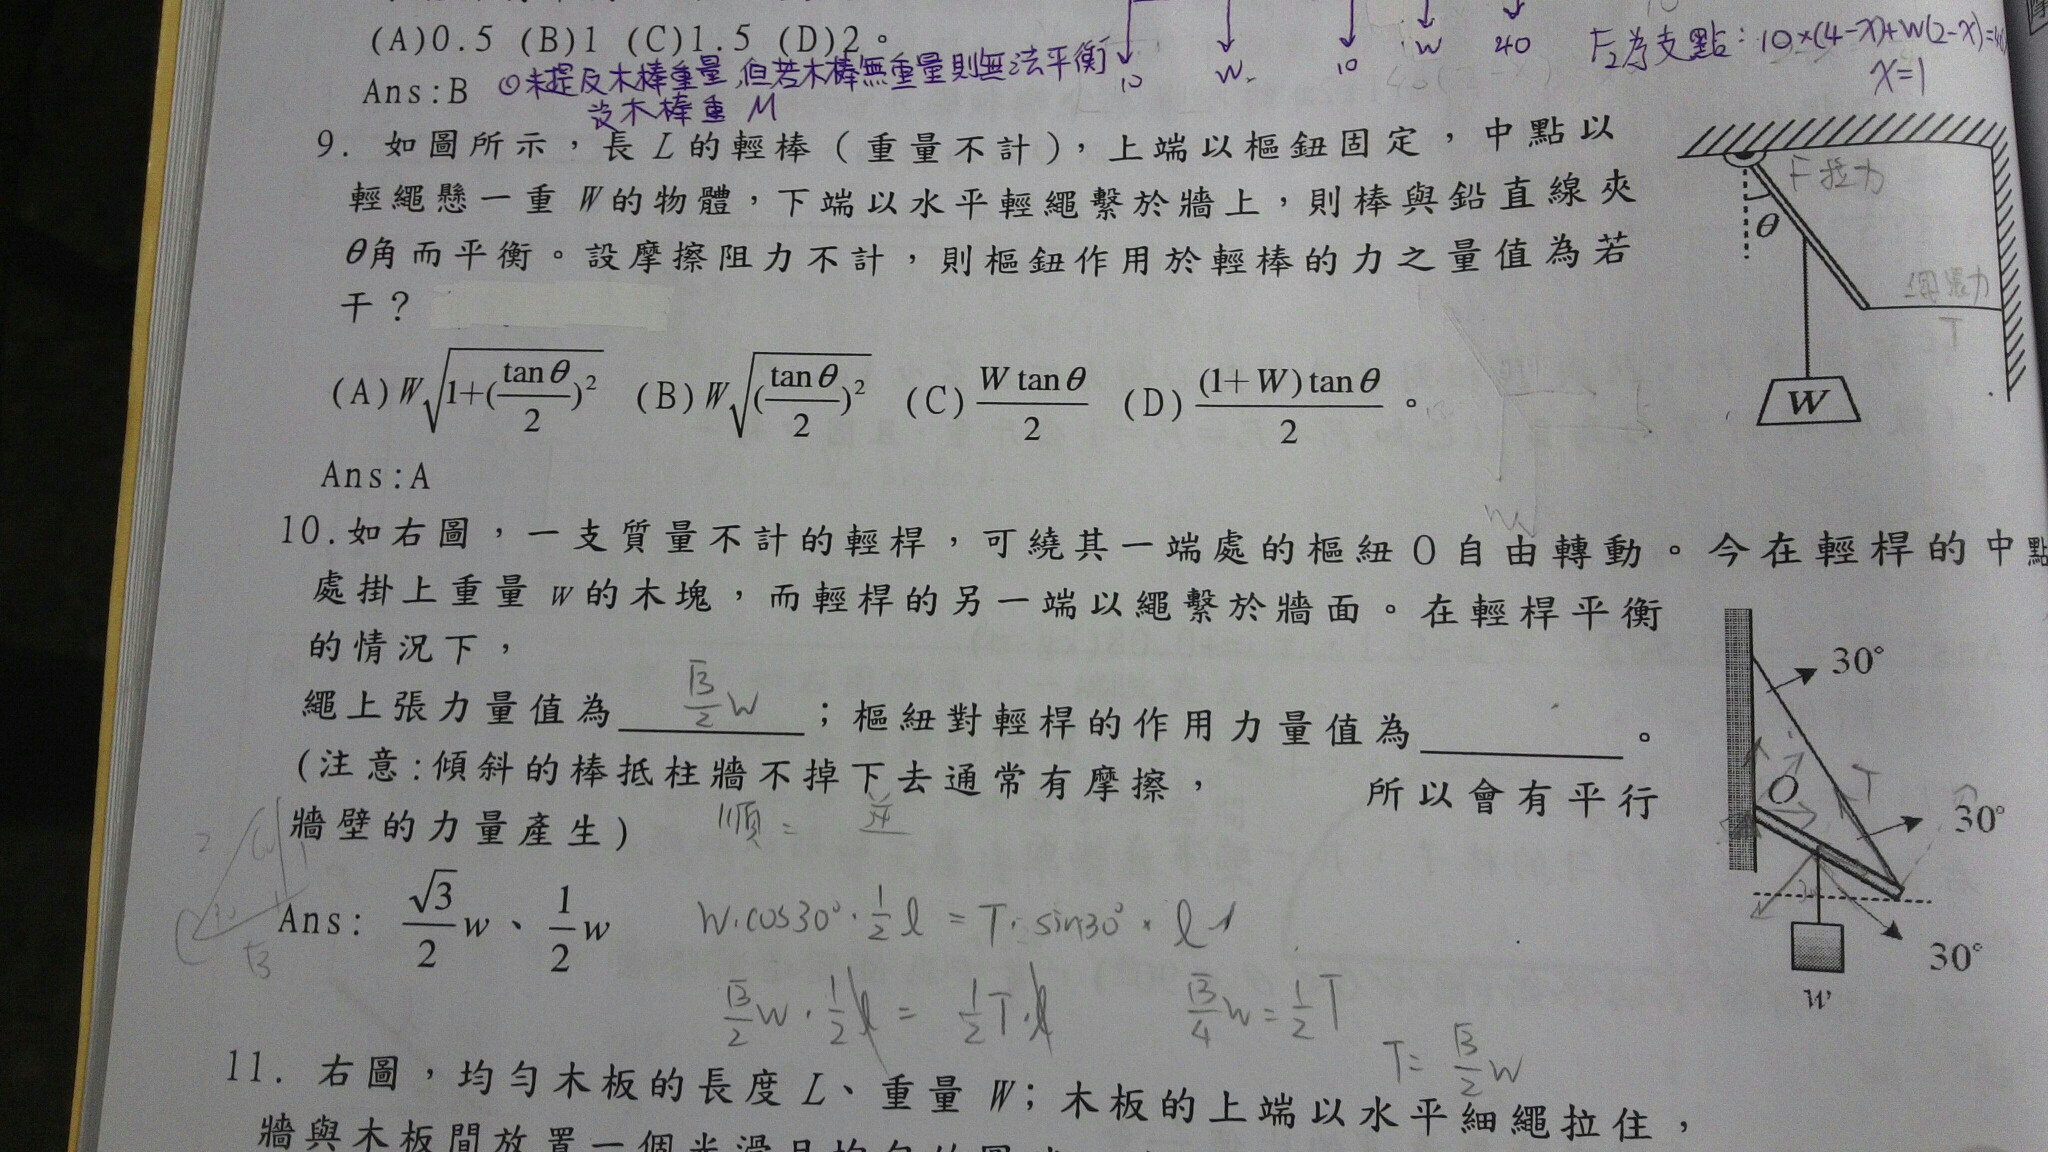 (A)0.5 (B)1 (C)1.5 (D)2。
Ans:B ⊙未提及木棒重量,但若木棒無重量則無法平衡
設木棒重 M
10 W 10 W 40
F₂為支點: 10×(4-x)+W(2-x)=
x=1
9. 如圖所示,長 L 的輕棒(重量不計),上端以樞鈕固定,中點以
輕繩懸一重 W的物體,下端以水平輕繩繫於牆上,則棒與鉛直線夾
θ角而平衡。設摩擦阻力不計,則樞鈕作用於輕棒的力之量值為若
干?
(A) W√(1+(tanθ/2)²) (B) W√((tanθ/2)²) (C) W tanθ/2 (D) (1+W)tanθ/2 。
Ans:A
F拉力
θ
繩張力
T
W
10.如右圖,一支質量不計的輕桿,可繞其一端處的樞紐 O 自由轉動。今在輕桿的中點
處掛上重量 w 的木塊,而輕桿的另一端以繩繫於牆面。在輕桿平衡
的情況下,
繩上張力量值為 √3/2 W ;樞紐對輕桿的作用力量值為 。
(注意:傾斜的棒抵柱牆不掉下去通常有摩擦, 所以會有平行
牆壁的力量產生)
順 = 逆
Ans: √3/2 w、1/2 w
W·cos30°·1/2 l = T·sin30°×l
√3/2 W·1/2 l = 1/2 T·l
√3/4 W = 1/2 T
T= √3/2 W
2 1 √3
30°
O
T
30°
30°
w
11. 右圖,均勻木板的長度 L、重量 W;木板的上端以水平細繩拉住,
牆與木板間放置一個光滑且均勻的圓